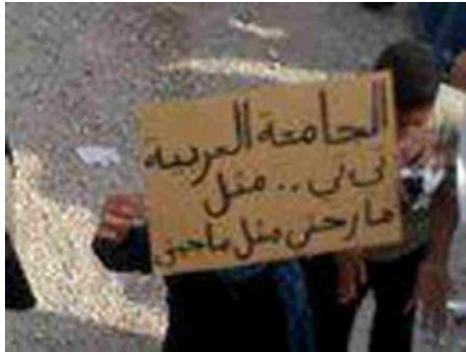 الجامعة العربية
تي تي .. مثل
ما رحتي مثل ما جيتي